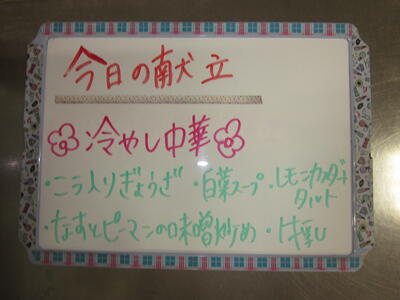 今日の献立
冷やし中華
・ニラ入りぎょうざ ・白菜スープ ・レモンカスタードタルト
・なすとピーマンの味噌炒め